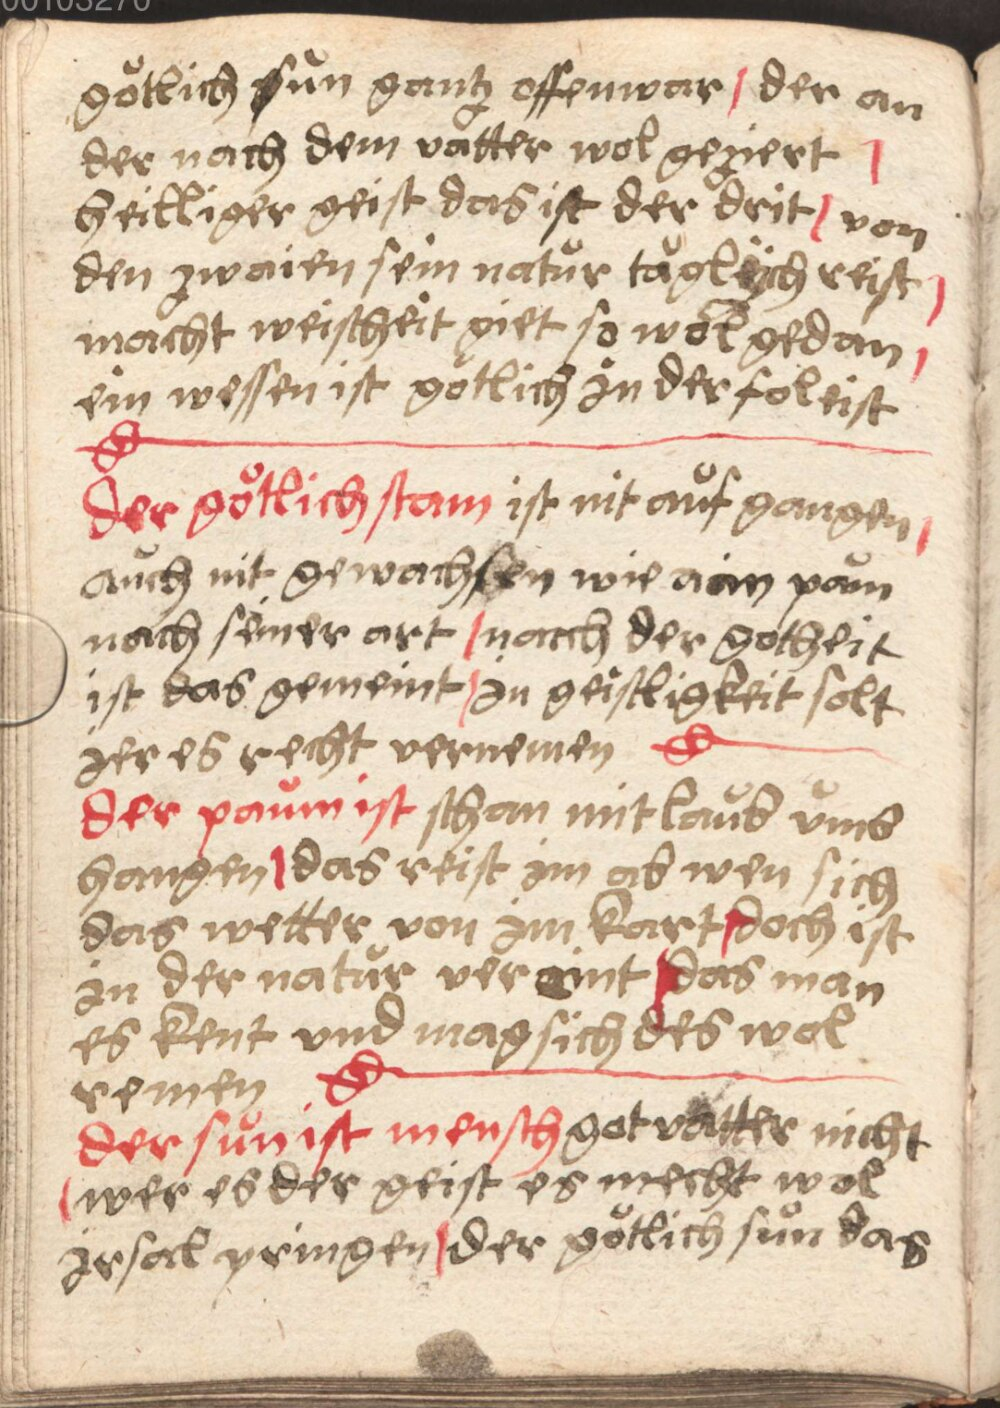 00103270
götlich sun gantz offenwar / der an
der nach dem vatter wol geziert /
heilliger geist das ist der drit / von
den zwaien sein natur täglich reist /
macht weischeit giet so wol gedan /
ein wessen ist götlich in der foleist
der götlich stam ist nit auf gangen /
auch nit gewachsen wie ain paum
nach seiner art / nach der gotheit
ist das gemeint / in geistligkeit solt
ier es recht vernemen
der paum ist schan mit laub vmb
hangen / das reist im ab wen sich
das wetter von im kart / doch ist
in der natur veraint / das man
es kent vnd mag sich des wol
remen
der sun ist mensch got vatter nicht
/ wer es der geist es mecht wol
irsal pringen / der götlich sun das